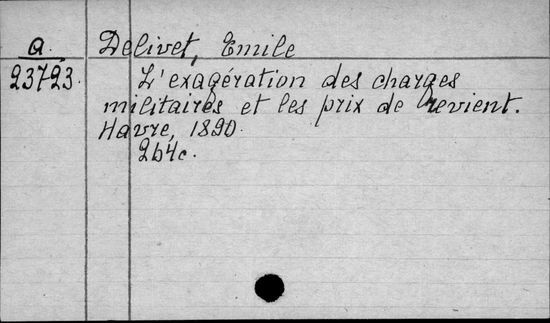 a. Delivet, Emile
23723. L'exagération des charges
militaires et les prix de revient.
Havre, 1890.
2b4c.